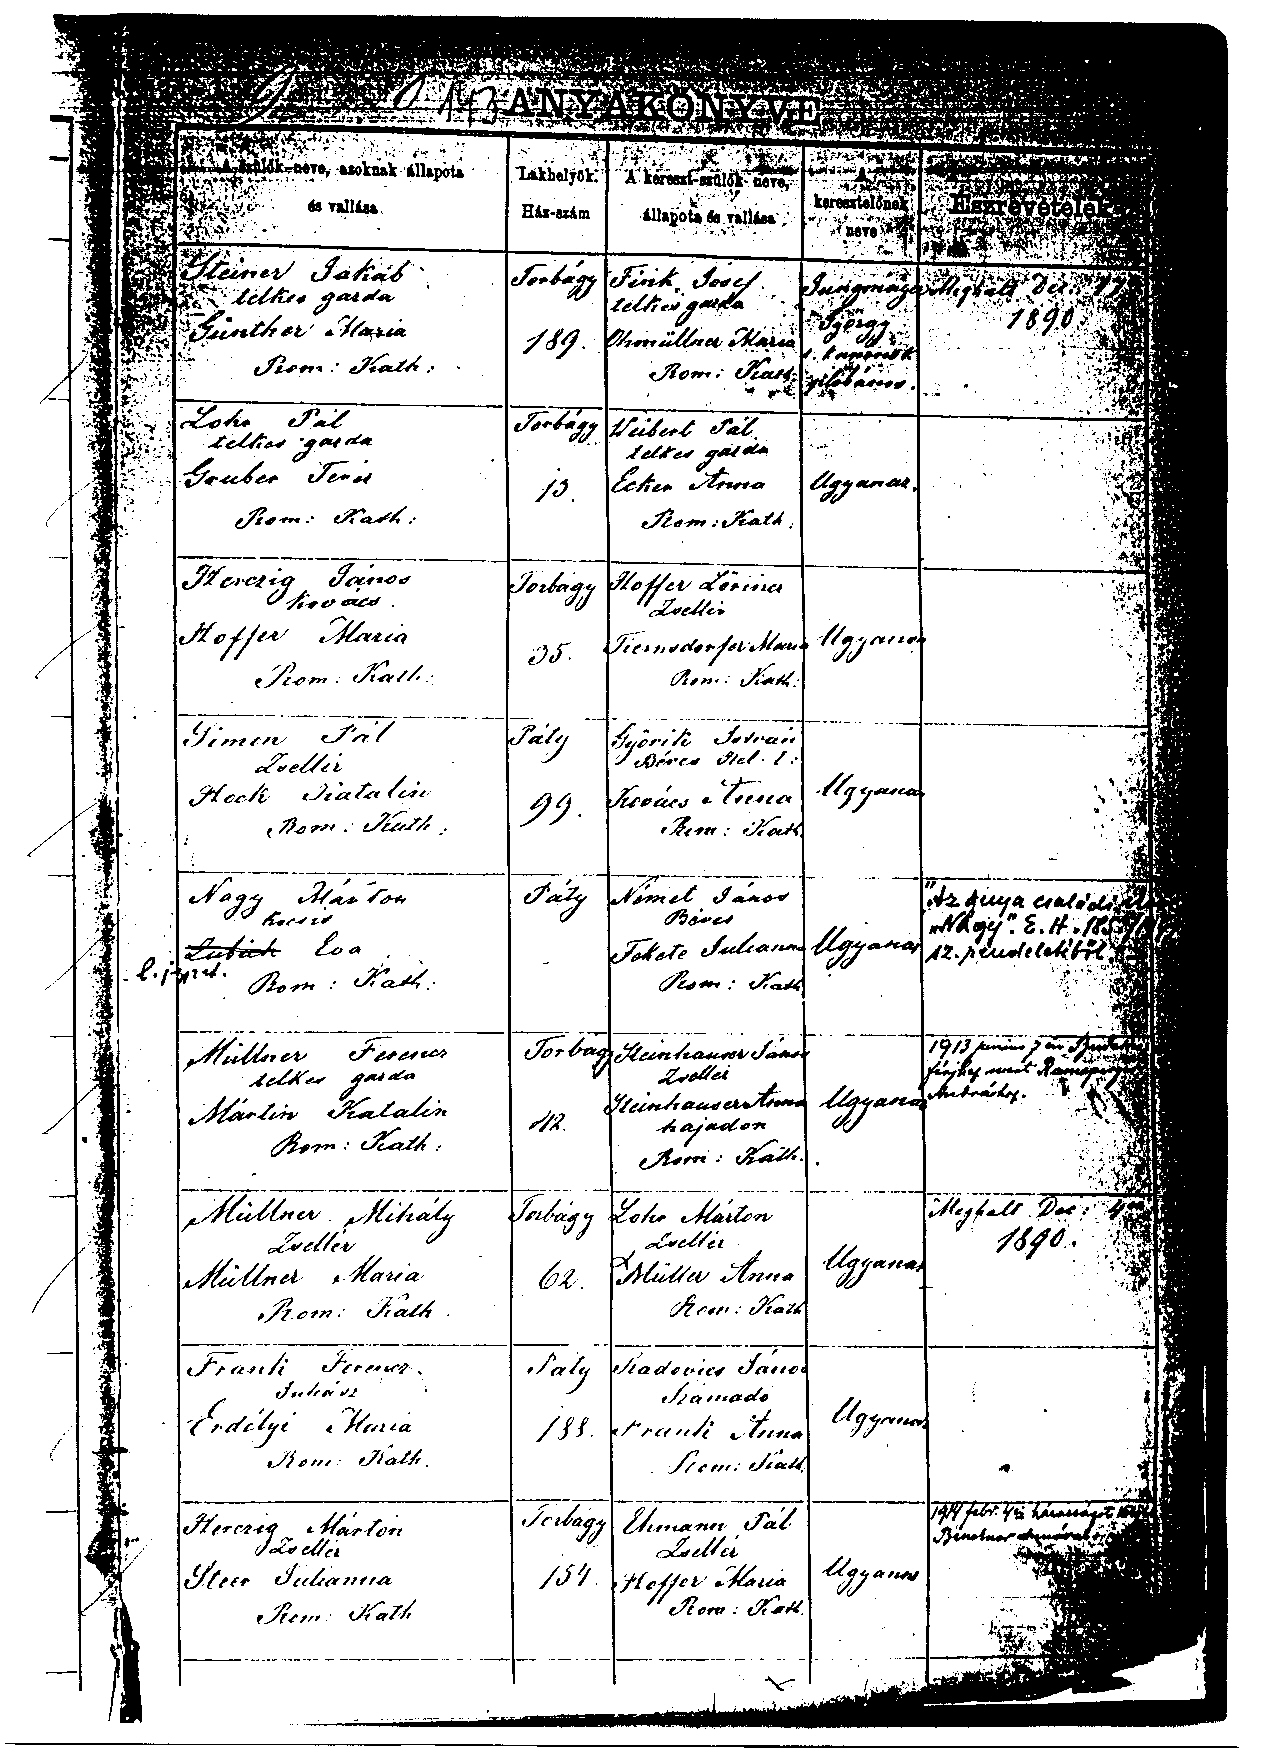 143 ANYAKÖNYVE
A szülők neve, azoknak állapota
és vallása
Lakhelyök.
Ház-szám
A kereszt-szülők neve,
állapota és vallása
A
keresztelőnek
neve
Észrevételek
Steiner Jakab
telkes gazda
Günther Maria
Rom: Kath:
Torbágy
189.
Fink József
telkes gazda
Ohmüllner Maria
Rom: Kath:
György
plébános.
Meghalt Dec.
1890
Lohr Pál
telkes gazda
Gruber Teréz
Rom: Kath:
Torbágy
13.
Weibert Pál
telkes gazda
Ecker Anna
Rom: Kath:
Ugyanaz.
Herczig János
kovács
Hoffer Maria
Rom: Kath:
Torbágy
35.
Hoffer Lőrincz
Zsellér
Maria
Rom: Kath:
Ugyanaz
Simon Pál
Zsellér
Heck Katalin
Rom: Kath:
Páty
99.
Győrik István
Béres
Kovács Anna
Rom: Kath
Ugyanaz
Nagy Márton
kocsis
Eva
l. jegyz.
Rom: Kath:
Páty
Német János
Béres
Fekete Julianna
Rom: Kath
Ugyanaz
"Az anya családi
"Nagy". E. H.
12. rendeletéből
Müllner Ferencz
telkes gazda
Mártin Katalin
Rom: Kath:
Torbágy
42.
Steinhauser János
Zsellér
Steinhauser Anna
hajadon
Rom: Kath.
Ugyanaz
1913 junius 7 én
férjhez ment
Andráshoz.
Müllner Mihály
Zsellér
Müllner Maria
Rom: Kath.
Torbágy
62.
Lohr Márton
Zsellér
Müller Anna
Rom: Kath
Ugyanaz
Meghalt Dec: 4
1890.
Frank Ferencz
Juhász
Erdélyi Maria
Rom: Kath.
Páty
188.
Radovics János
Számadó
Frank Anna
Rom: Kath
Ugyanaz
Herczig Márton
Zsellér
Steer Julianna
Rom: Kath
Torbágy
154.
Ehmann Pál
Zsellér
Hoffer Maria
Rom: Kath.
Ugyanaz
febr. 4 házasságot